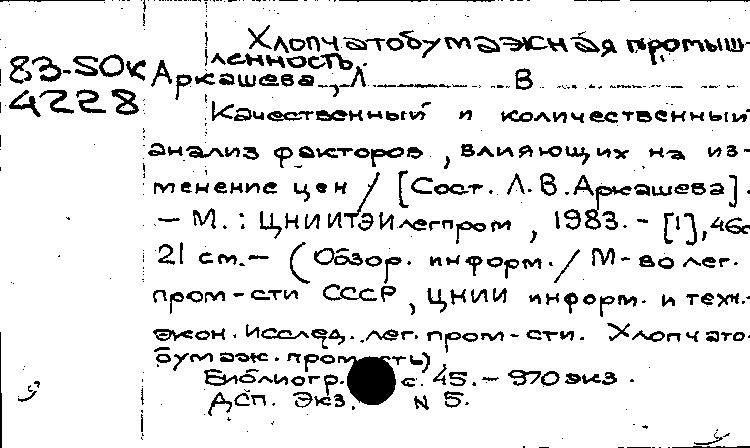 Хлопчатобумажная промыш-
ленность.
83-5OK
4228
Аркашева, Л В
Качественный и количественный
анализ факторов, влияющих на из-
менение цен / [Сост. Л. В. Аркашева].
— М. : ЦНИИТЭИлегпром, 1983. - [1], 46с
21 см. — (Обзор. информ. / М-во лег.
пром-сти СССР, ЦНИИ информ. и техн.-
экон. исслед. лег. пром-сти. Хлопчато-
бумаж. пром-сть)
Библиогр. с. 45. — 970 экз.
ДСП. Экз. N 5.